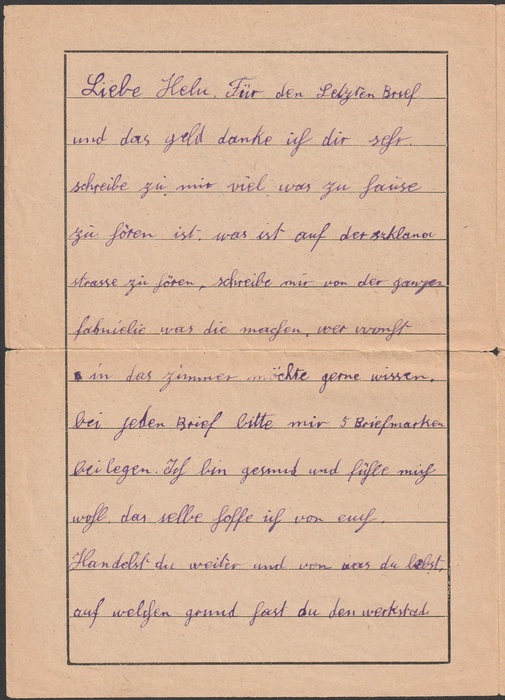 Liebe Helu. Für den Letzten Brief
und das geld danke ich dir sehr.
schreibe zu mir viel was zu hause
zu hören ist. was ist auf der szklana
strasse zu hören, schreibe mir von der ganzen
fahmielie was die machen, wer wohnt
in das zimmer möchte gerne wissen.
bei jeden Brief bitte mir 5 Briefmarken
bei legen. Ich bin gesund und fühle mich
wohl das selbe hoffe ich von euch.
Handelst du weiter und von was du lebst,
auf welchen grund hast du den werkstad